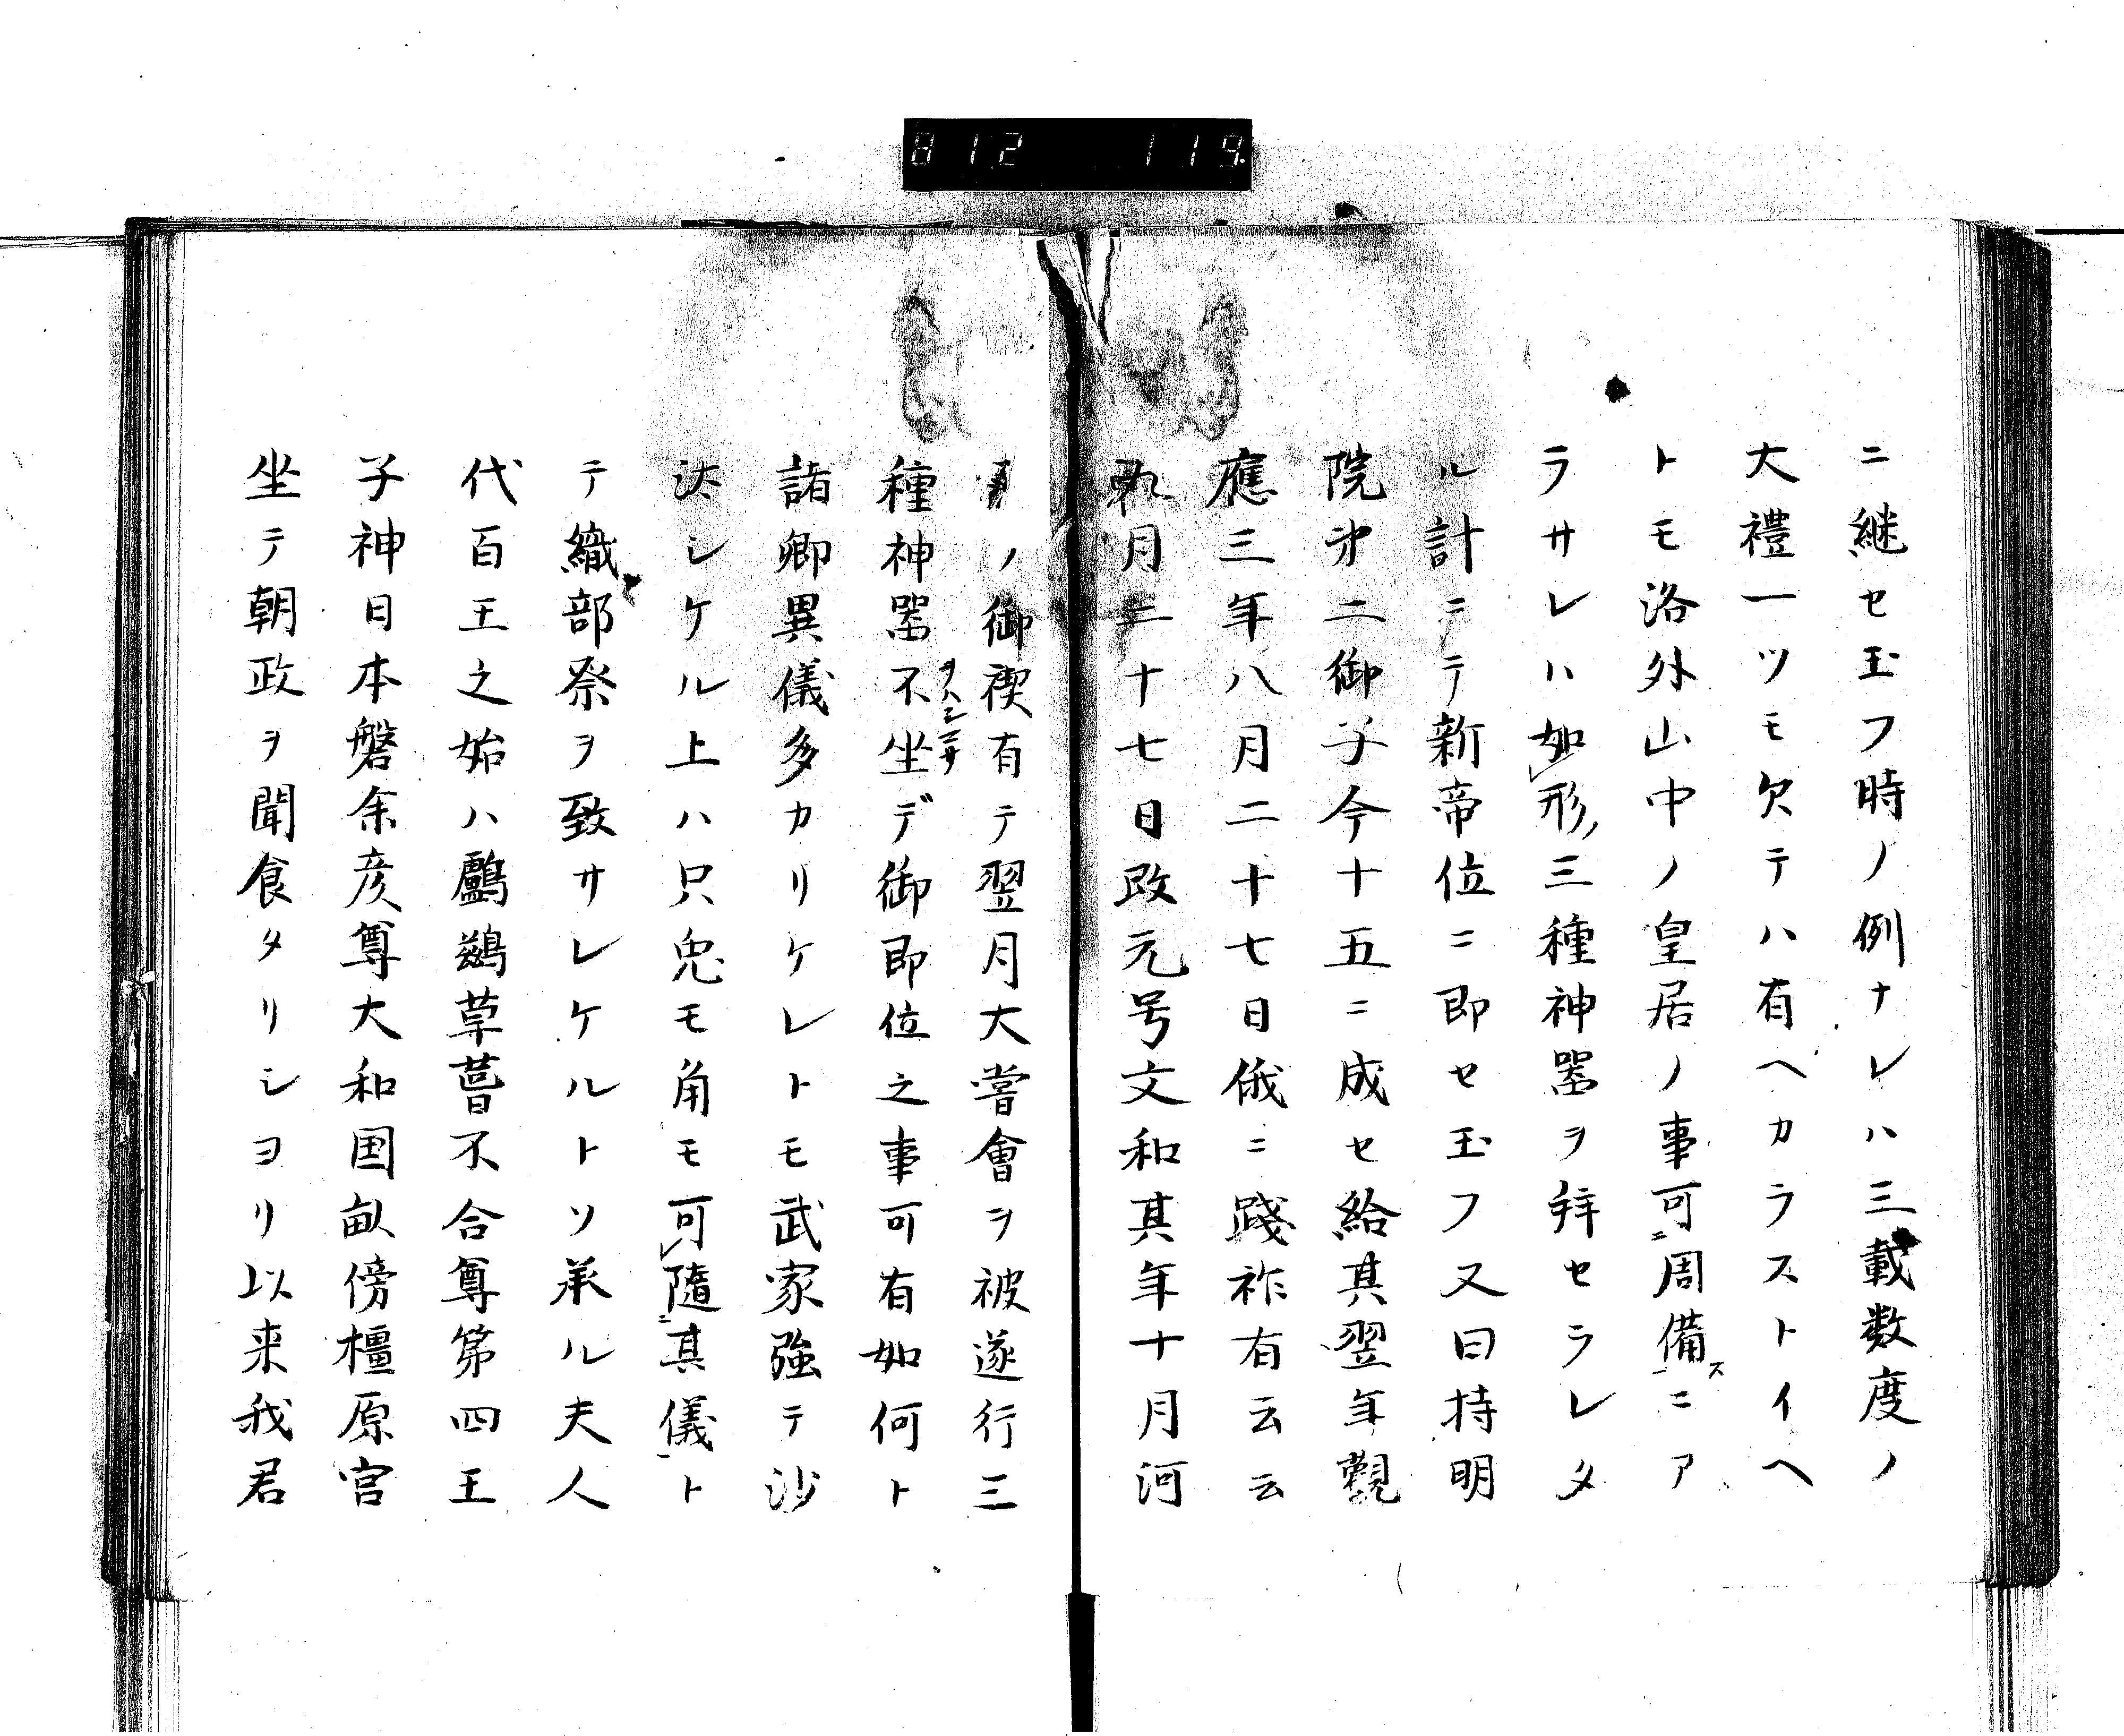 812 119
ニ継セ玉フ時ノ例ナレハ三載数度ノ
大禮一ツモ欠テハ有ヘカラストイヘ
トモ洛外山中ノ皇居ノ事可周備スニア
ラサレハ如形三種神器ヲ拜セラレタ
ル計ニテ新帝位ニ即セ玉フ又曰持明
院㐧二御子今十五ニ成セ給其翌年觀
應三年八月二十七日俄ニ踐祚有云云
九月二十七日改元号文和其年十月河
ノ御禊有テ翌月大嘗會ヲ被遂行三
種神器不坐デ御即位之事可有如何ト
ヲハシマサ
諸卿異儀多カリケレトモ武家強テ沙
汰シケル上ハ只兎モ角モ可隨其儀ト
テ織部祭ヲ致サレケルトソ承ル夫人
代百王之始ハ鸕鷀草葺不合尊第四王
子神日本磐余彦尊大和国畝傍橿原宮
坐テ朝政ヲ聞食タリシヨリ以来我君